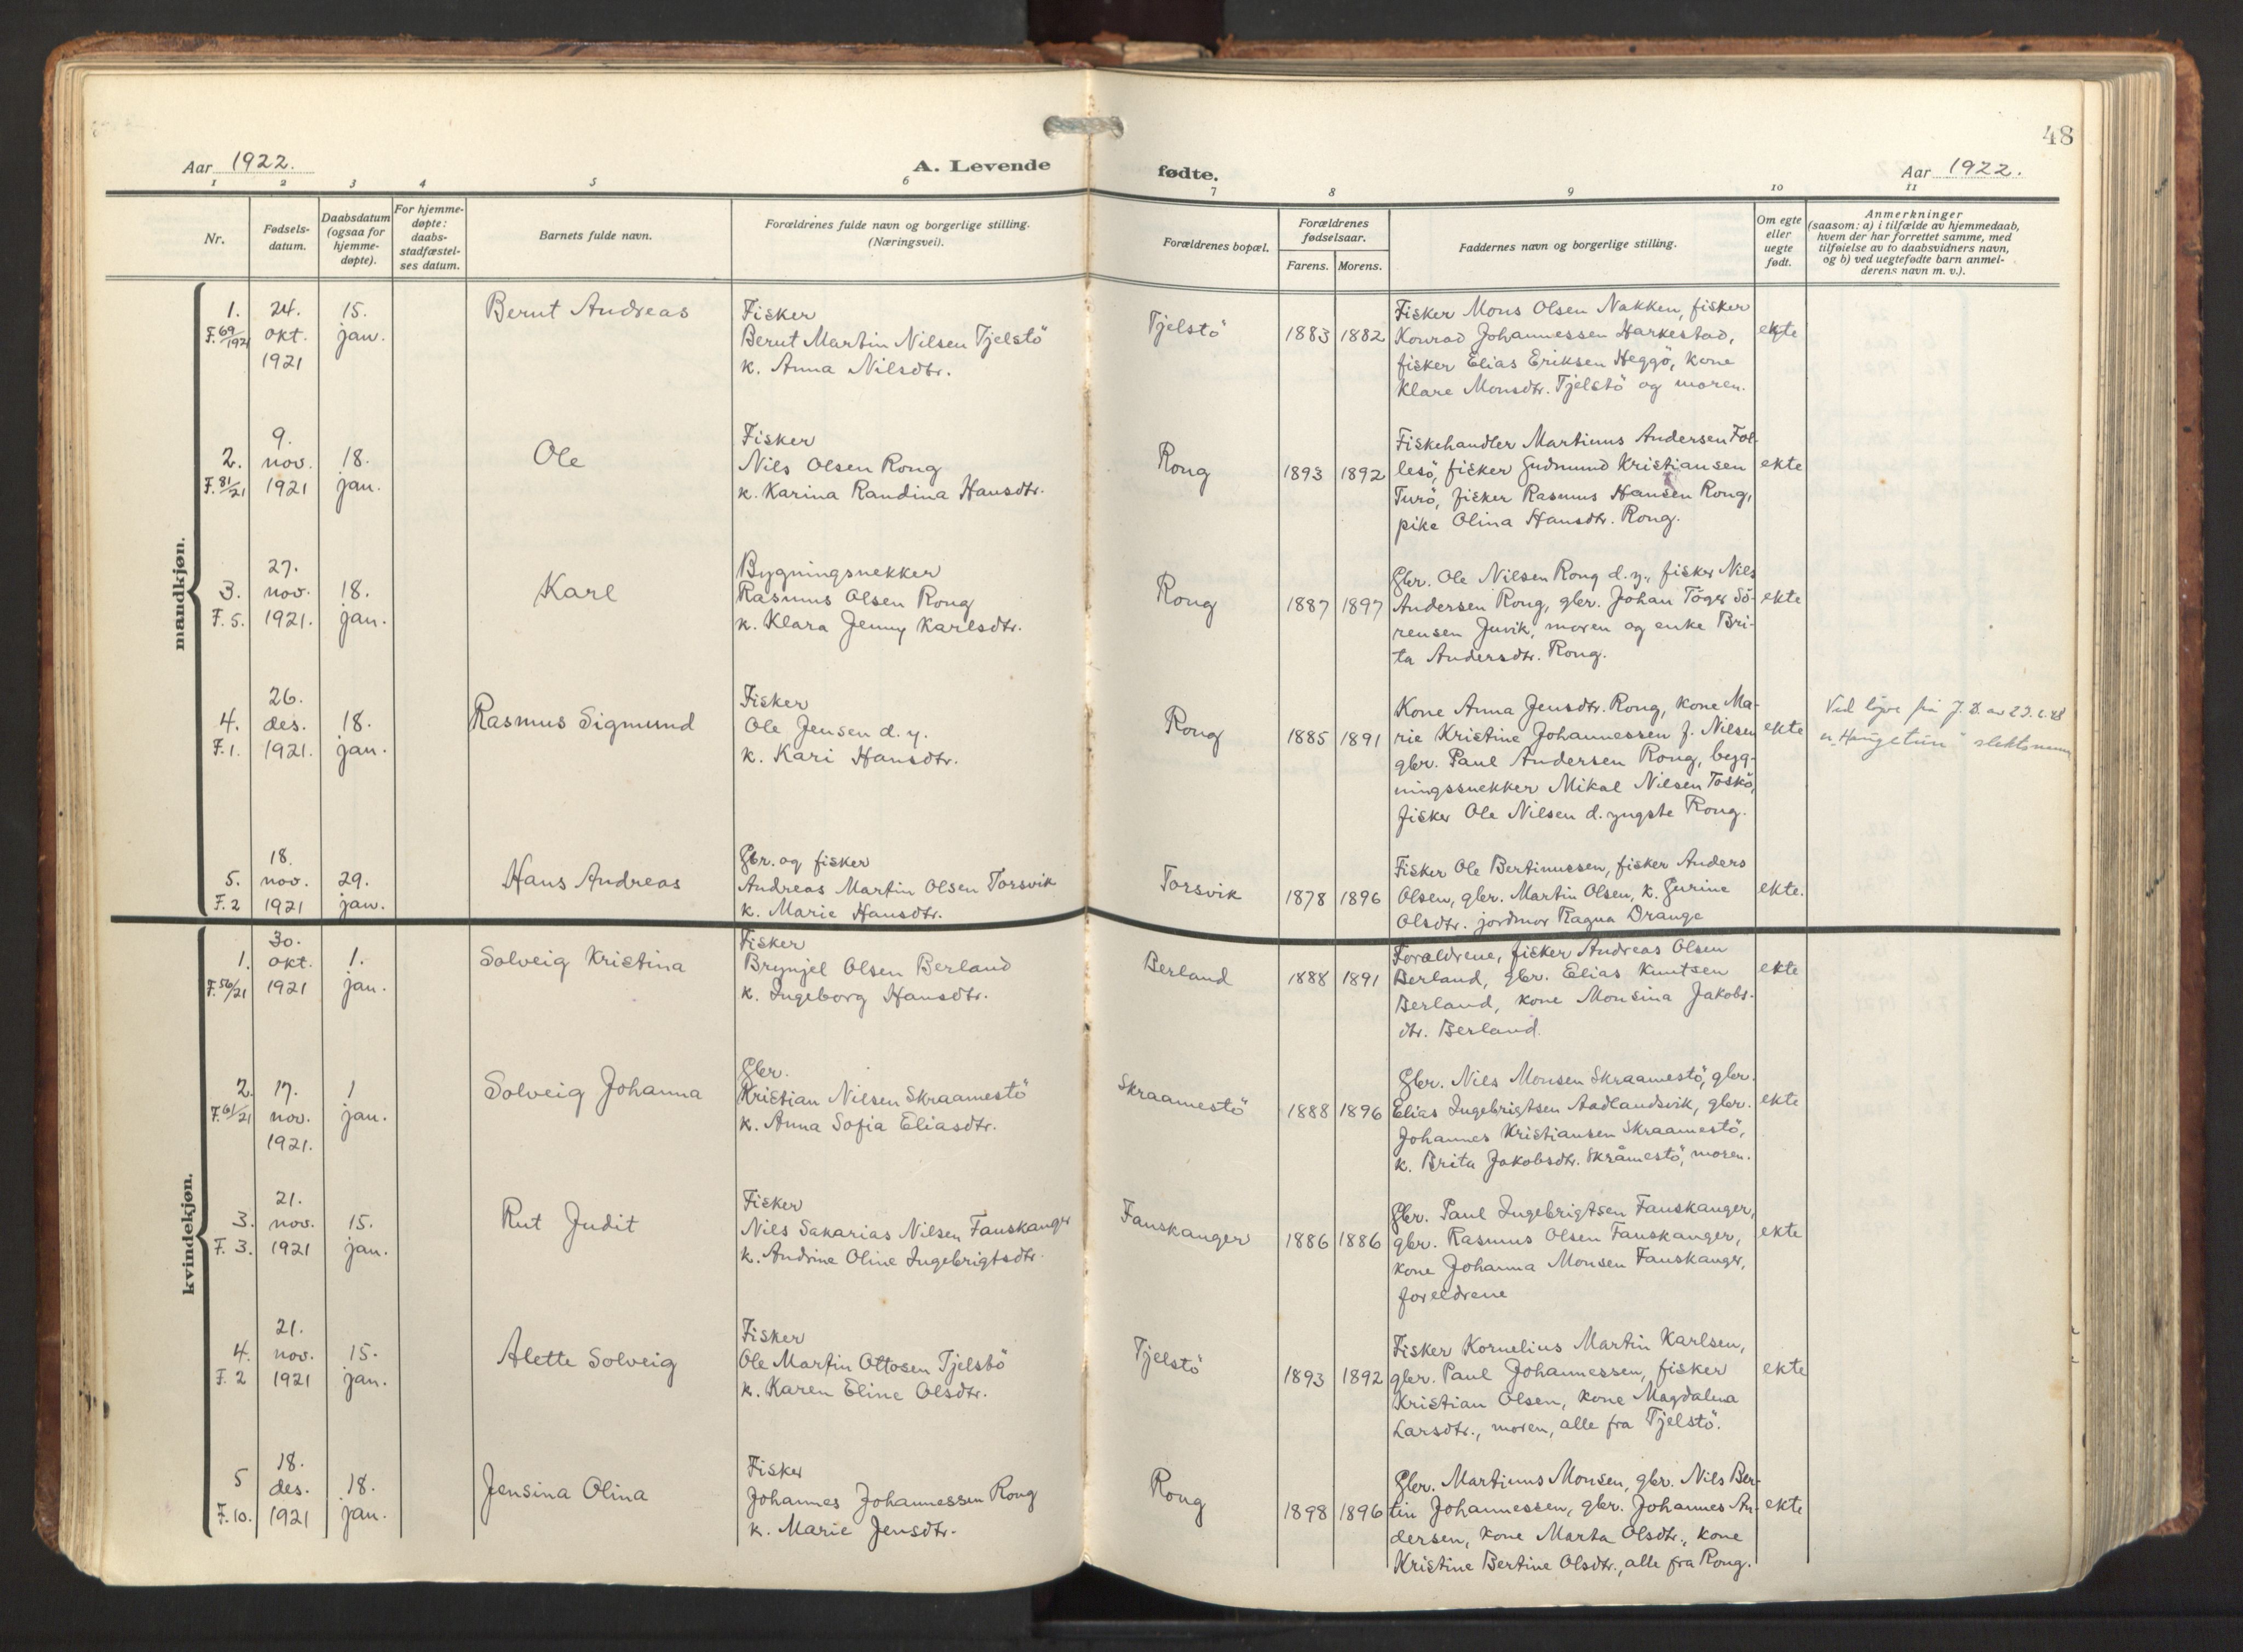 48
Aar 1922.
A. Levende
fødte.
Aar 1922.
1 2 3 4 5 6 7 8 9 10 11
Nr.
Fødsels-
datum.
Daabsdatum
(ogsaa for
hjemme-
døpte).
For hjemme-
døpte:
daabs-
stadfæstel-
ses datum.
Barnets fulde navn.
Forældrenes fulde navn og borgerlige stilling.
(Næringsvei).
Forældrenes bopæl.
Forældrenes
fødselsaar.
Farens. Morens.
Faddernes navn og borgerlige stilling.
Om egte
eller
uegte
født.
Anmerkninger
(saasom: a) i tilfælde av hjemmedaab,
hvem der har forrettet samme, med
tilføielse av to daabsvidners navn,
og b) ved uegtefødte barn anmel-
derens navn m. v.).
mandkjøn.
1.
F. 69/1921
24.
okt.
1921
15.
jan.
Bernt Andreas
Fisker
Bernt Martin Nilsen Tjelstö
k. Anna Nilsdtr.
Tjelstö
1883 1882
Fisker Mons Olsen Nakken, fisker
Konrad Johannessen Harkestad,
fisker Elias Eriksen Heggö, kone
Klare Monsdtr. Tjelstö og moren.
ekte
2.
F. 81/21
9.
nov.
1921
18.
jan.
Ole
Fisker
Nils Olsen Rong
k. Karina Randina Hansdtr.
Rong
1893 1892
Fiskehandler Martinus Andersen Fol-
lesö, fisker Gudmund Kristiansen
Turö, fisker Rasmus Hansen Rong,
pike Olina Hansdtr. Rong.
ekte
3.
F. 5.
27.
nov.
1921.
18.
jan.
Karl
Bygningsnekker
Rasmus Olsen Rong
k. Klara Jenny Karlsdtr.
Rong
1887 1897
Gbr. Ole Nilsen Rong d.y., fisker Nils
Andersen Rong, gbr. Johan Töger Sö-
rensen Juvik, moren og enke Bri-
ta Andersdtr. Rong.
ekte
4.
F. 1.
26.
des.
1921.
18.
jan.
Rasmus Sigmund
Fisker
Ole Jensen d. y.
k. Kari Hansdtr.
Rong
1885 1891
Kone Anna Jensdtr. Rong, kone Ma-
rie Kristine Johannessen f. Nilsen
gbr. Paul Andersen Rong, byg-
ningssnekker Mikal Nilsen Toskö,
fisker Ole Nilsen d. yngste Rong.
ekte
Ved fra J. D. av
"Haugetun" slektsnavn
5.
F. 2
18.
nov.
1921
29.
jan.
Hans Andreas
Gbr. og fisker
Andreas Martin Olsen Torsvik
k. Marie Hansdtr.
Torsvik
1878 1896
Fisker Ole Bertinussen, fisker Anders
Olsen, gbr. Martin Olsen, k. Gurine
Olsdtr. jordmor Ragna Drange
ekte.
kvindekjøn.
1.
F. 56/21
30.
okt.
1921
1.
jan.
Solveig Kristina
Fisker
Brynjel Olsen Berland
k. Ingeborg Hansdtr.
Berland
1888 1891
Forældrene, fisker Andreas Olsen
Berland, gbr. Elias Knutsen
Berland, kone Monsina Jakobs-
dtr. Berland.
ekte
2.
F. 61/21
17.
nov.
1921.
1
jan.
Solveig Johanna
Gbr.
Kristian Nilsen Skraamestö
k. Anna Sofia Eliasdtr.
Skraamestö
1888 1896
Gbr. Nils Monsen Skraamestö, gbr.
Elias Ingebrigtsen Aadlandsvik, gbr.
Johannes Kristiansen Skraamestö,
k. Brita Jakobsdtr. Skråmestö, moren.
ekte
3.
F. 3.
21.
nov.
1921
15.
jan.
Rut Judit
Fisker
Nils Sakarias Nilsen Fauskanger
k. Andrine Oline Ingebrigtsdtr.
Fauskanger
1886 1886
Gbr. Paul Ingebrigtsen Fauskanger,
gbr. Rasmus Olsen Fauskanger,
kone Johanna Monsen Fauskanger,
foreldrene
ekte
4.
F. 2
21.
nov.
1921
15.
jan.
Alette Solveig
Fisker
Ole Martin Ottosen Tjelstö
k. Karen Eline Olsdtr.
Tjelstö
1893 1892
Fisker Kornelius Martin Karlsen,
gbr. Paul Johannessen, fisker
Kristian Olsen, kone Magdalena
Larsdtr., moren, alle fra Tjelstö.
ekte
5
F. 10.
18.
des.
1921
18.
jan.
Jensina Olina
Fisker
Johannes Johannessen Rong
k. Marie Jensdtr.
Rong
1898 1896
Gbr. Martinus Monsen, gbr. Nils Ber-
tin Johannessen, gbr. Johannes An-
dersen, kone Marta Olsdtr., kone
Kristine Bertine Olsdtr., alle fra Rong.
ekte